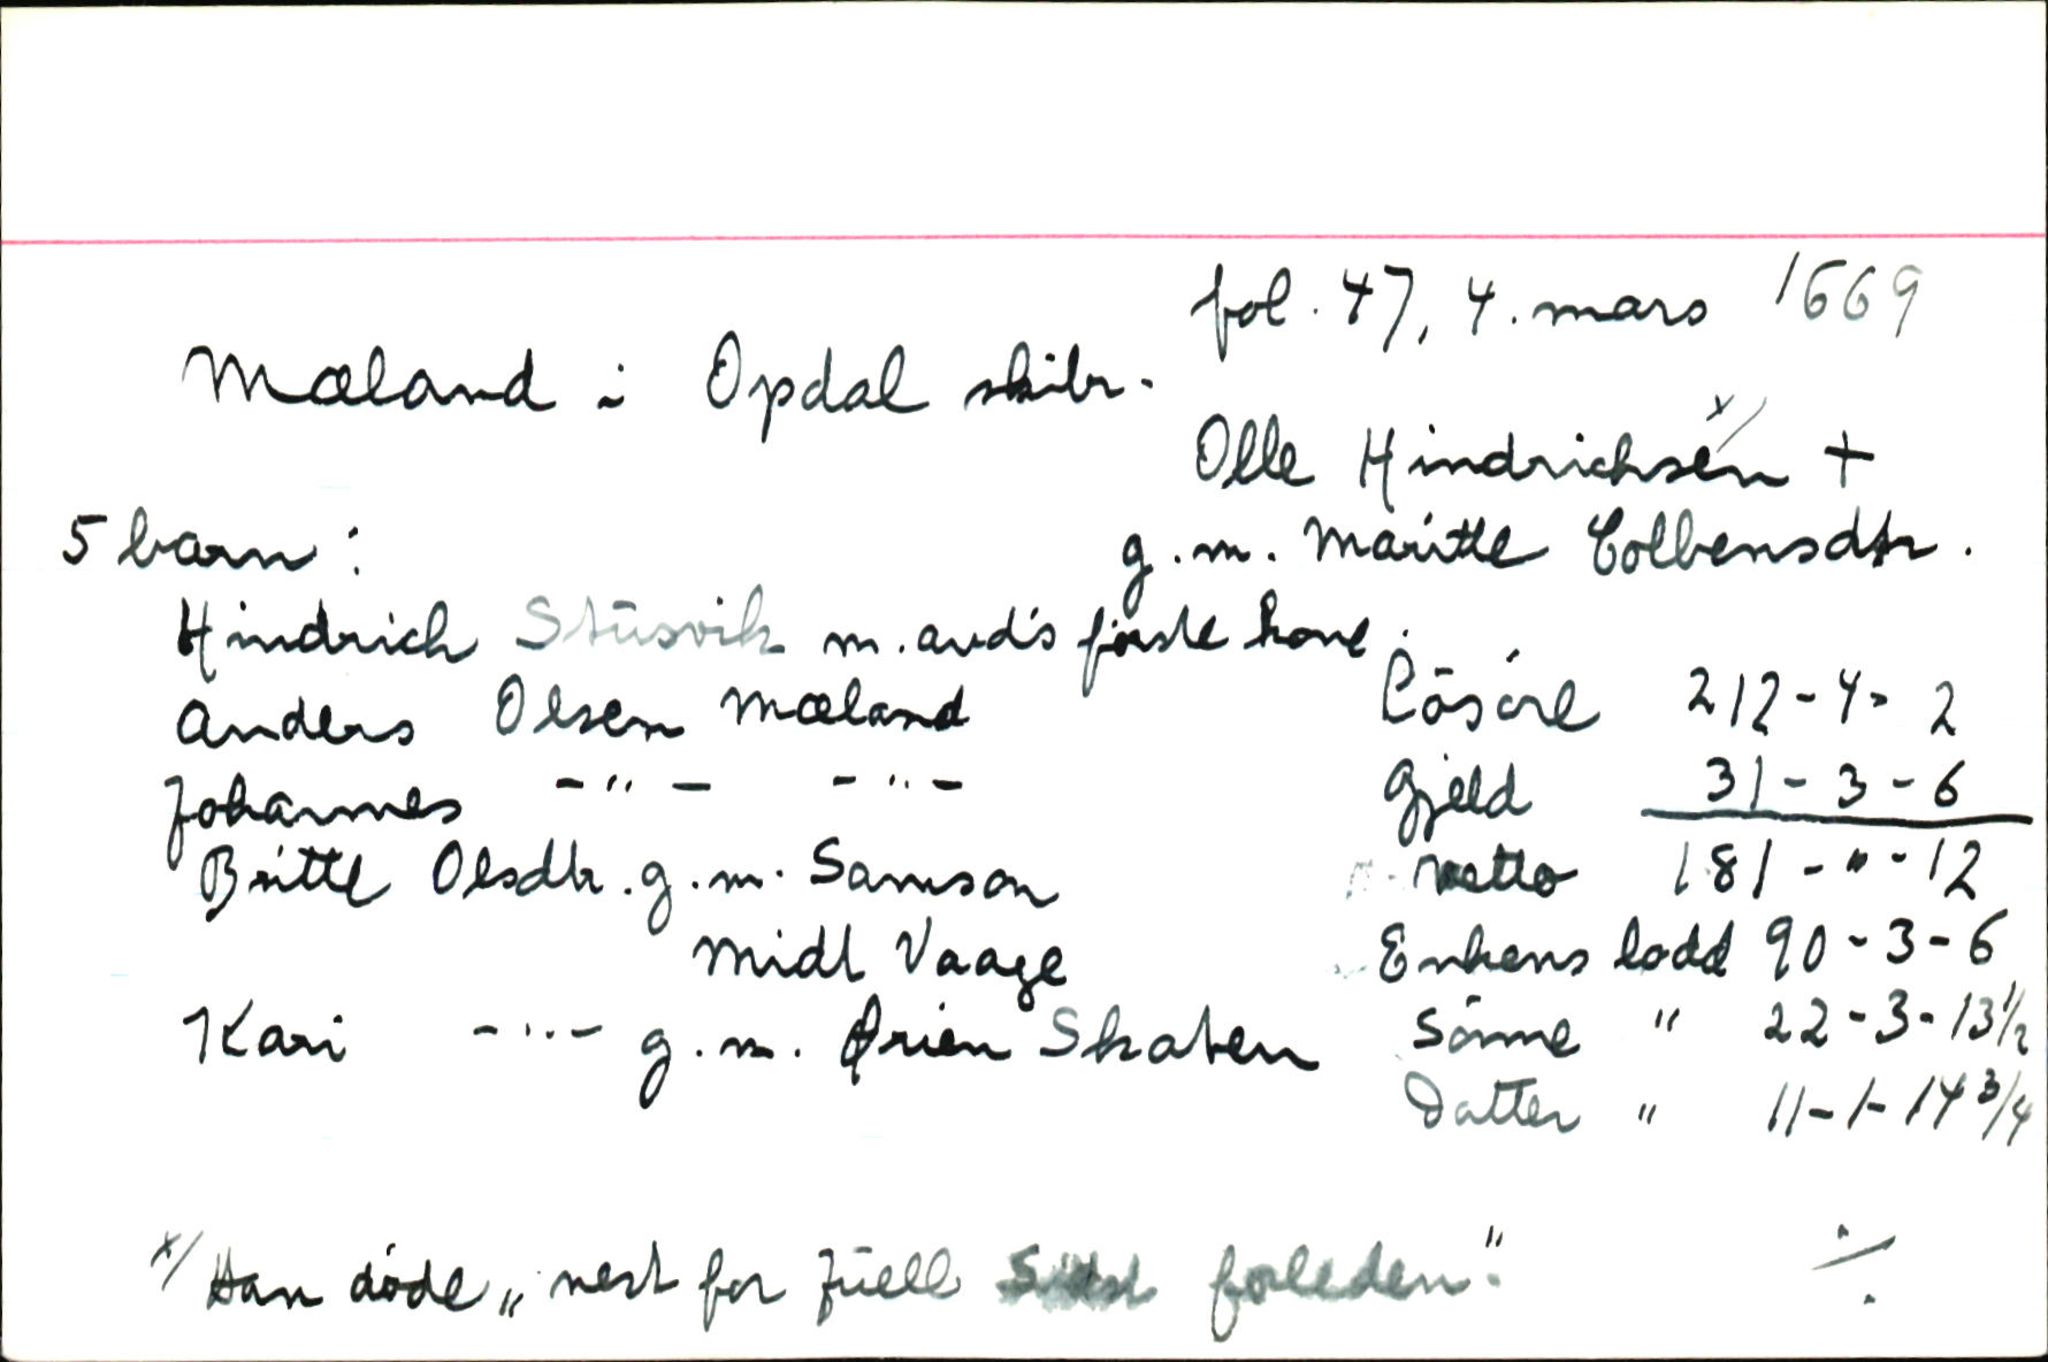 fol. 47, 4. mars 1669
Mæland i Opdal skibr.
Olle Hindrichsen x/ +
5 barn:
g.m. Maritte Colbensdtr.
Hindrich Stüsvik m. avd's første kone.
Anders Olsen Mæland
Johannes -"- -"-
Britte Olsdtr. g.m. Samson
Midt Vaage
Kari -"- g.m. Ørien Skaten
Løsøre 212-4-2
Gjeld 31-3-6
netto 181-"-12
Enkens lodd 90-3-6
Sønne " 22-3-13 1/2
Datter " 11-1-14 3/4
x/ Han døde „nest for Jüell Sidst forleden."
./.